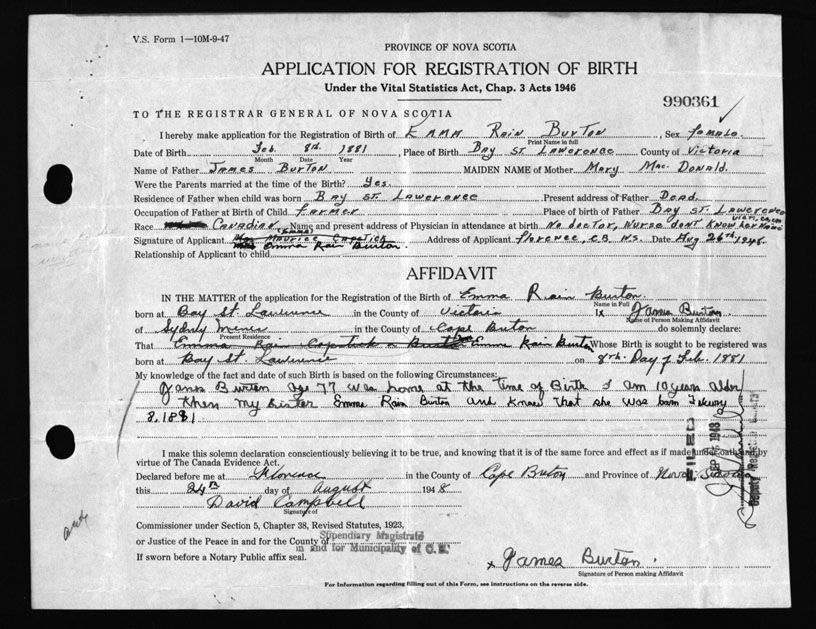 V.S. Form 1—10M-9-47
PROVINCE OF NOVA SCOTIA
APPLICATION FOR REGISTRATION OF BIRTH
Under the Vital Statistics Act, Chap. 3 Acts 1946
990361
TO THE REGISTRAR GENERAL OF NOVA SCOTIA
I hereby make application for the Registration of Birth of EMMA Rain Burton, Sex female
Print Name in full
Date of Birth Feb. 8th 1881, Place of Birth Bay St. Lawerence County of Victoria
Month Date Year
Name of Father James Burton MAIDEN NAME of Mother Mary Mac Donald.
Were the Parents married at the time of the Birth? Yes.
Residence of Father when child was born Bay St Lawerence Present address of Father Dead.
Occupation of Father at Birth of Child farmer Place of birth of Father Bay St. Lawerence
Race Canadian Name and present address of Physician in attendance at birth No doctor, Nurse dont know her name
(Emma)
Signature of Applicant Mrs Maurice Capstick Address of Applicant Florence, C.B. N.S. Date Aug 26th 1948.
Emma Rain Burton.
Relationship of Applicant to child
AFFIDAVIT
IN THE MATTER of the application for the Registration of the Birth of Emma Rain Burton
Name in Full
born at Bay St. Lawrence in the County of Victoria I James Burton
Name of Person Making Affidavit
of Sydney Mines in the County of Cape Breton do solemnly declare:
Present Residence
That Emma Rain Capstick Emma Rain Burton Whose Birth is sought to be registered was
born at Bay St. Lawrence on 8th. Day of Feb. 1881
My knowledge of the fact and date of such Birth is based on the following Circumstances:
James Burton age 77 was home at the time of Birth I am 10 years older
then my sister Emma Rain Burton and know that she was born
8, 1881
I make this solemn declaration conscientiously believing it to be true, and knowing that it is of the same force and effect as if made under oath and by
virtue of The Canada Evidence Act.
Declared before me at Florence in the County of Cape Breton and Province of Nova Scotia
this 24th day of August 1948
David Campbell
Signature of
Commissioner under Section 5, Chapter 38, Revised Statutes, 1923,
or Justice of the Peace in and for the County of Stipendiary Magistrate
in and for Municipality of C. B.
If sworn before a Notary Public affix seal.
x James Burton.
Signature of Person making Affidavit
For Information regarding filling out of this Form, see instructions on the reverse side.
FILED
1948